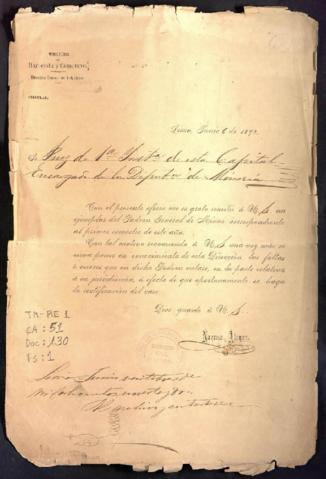 MINISTERIO
DE
Hacienda y Comercio
CIRCULAR.
Lima, Junio 6 de 1892.
Sr Juez de 1a Insta de esta Capital
Encargado de la Diputn de Minería
Con el presente oficio me es grato remitir á U.S. un
ejemplar del Padron General de Minas correspondiente
al primer semestre de este año.
Con tal motivo recomiendo á U.S. una vez más se
sirva poner en conocimiento de esta Dirección las faltas
ó errores que en dicho Padron notare, en la parte relativa
á su jurisdicción, á efecto de que oportunamente se haga
la rectificación del caso.
Dios guarde á U.S.
TM-RE 1
CA: 51
Doc: 130
Fs: 1
Lima Junio
mil ochocientos noventa